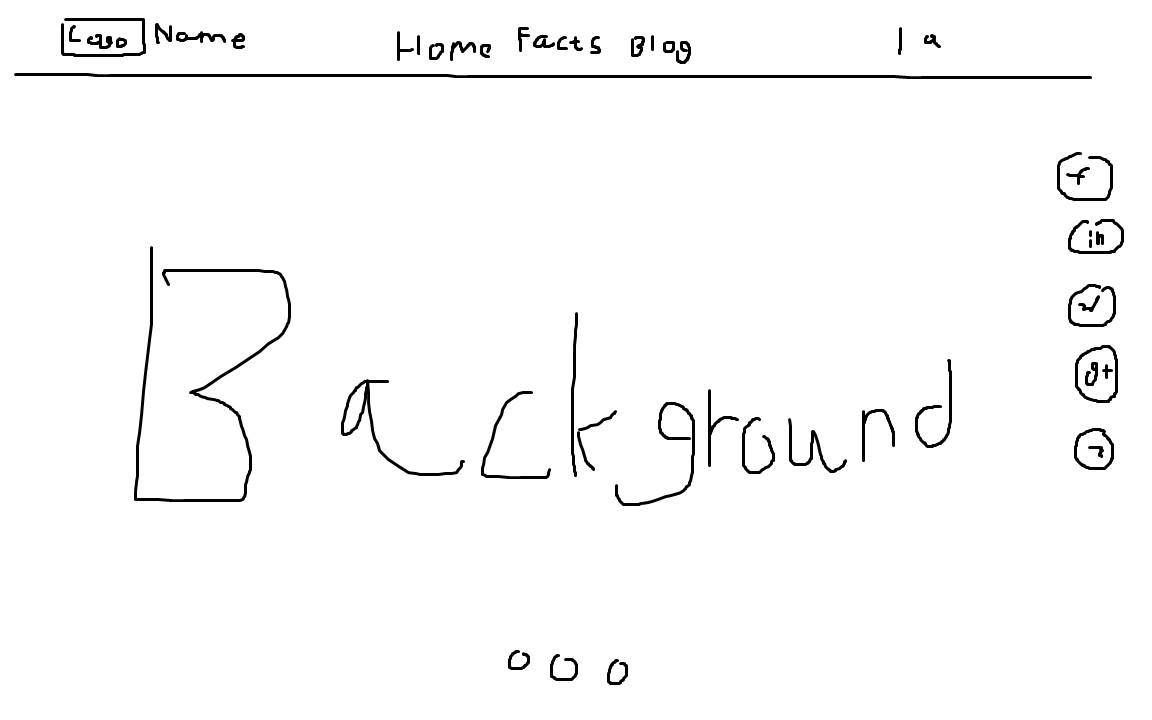 Logo Name Home Facts Blog
f
in
g+
Background